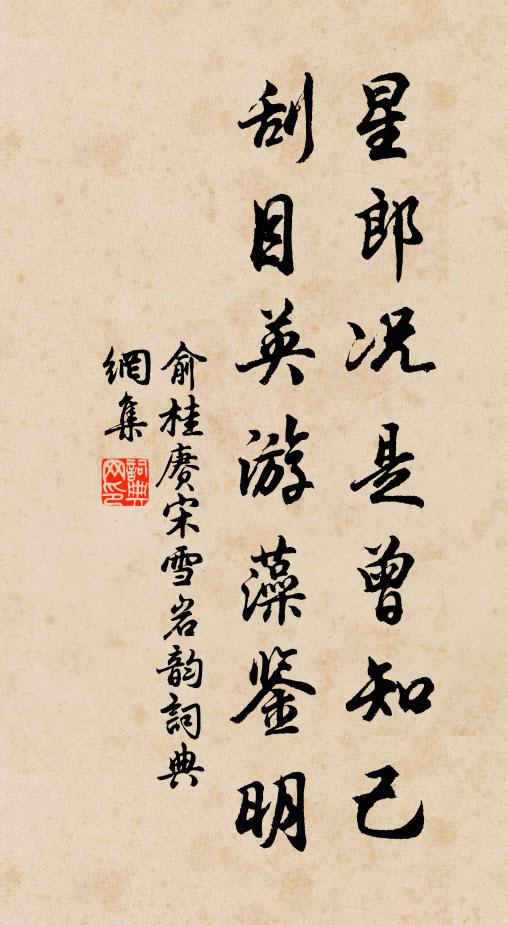 星郎况是曾知己
刮目英游藻鉴明
俞桂赓宋雪岩韵詞典
網集
詞典
网印